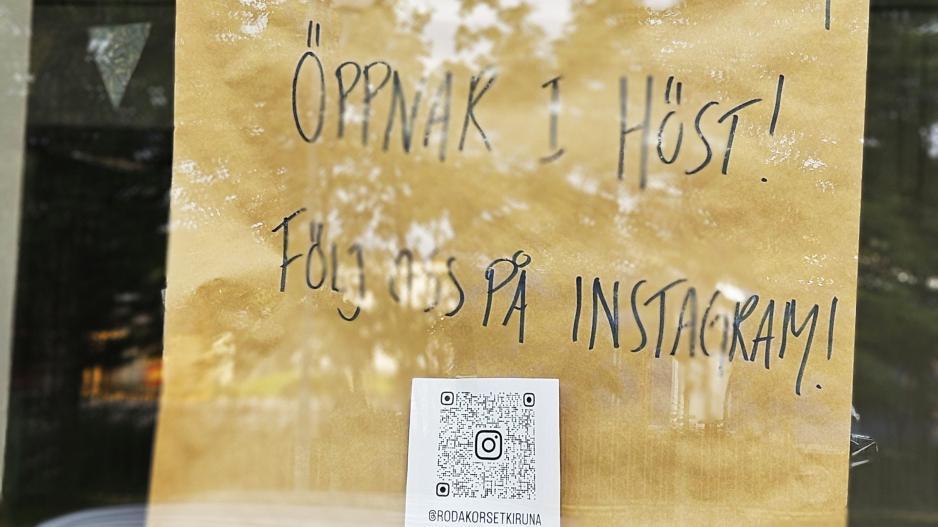 ÖPPNAR I HÖST!
FÖLJ OSS PÅ INSTAGRAM!
@RODAKORSETKIRUNA